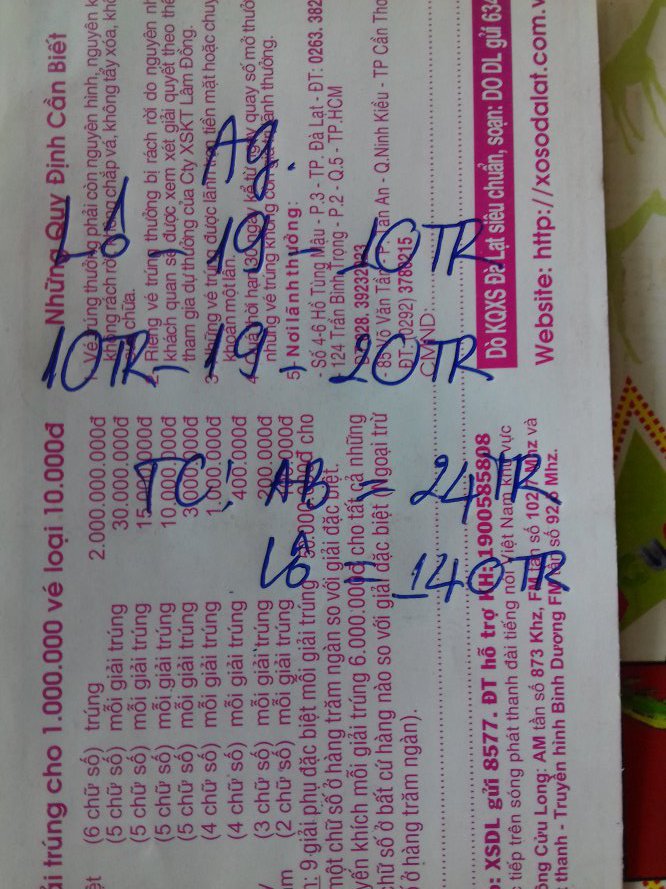 Ag.
Lô - 19 - 10TR
10TR - 19 - 20TR
TC: AB = 24TR
Lô = 140TR
Những Quy Định Cần Biết
Vé trúng thưởng phải còn nguyên hình, nguyên
không rách rời, chắp vá, không tẩy xóa,
chữa.
Riêng vé trúng thưởng bị rách rời do nguyên
khách quan sẽ được xem xét giải quyết theo
tham gia dự thưởng của Cty XSKT Lâm Đồng.
3- Những vé trúng được lãnh tiền mặt hoặc
khoản một lần.
những vé trúng không còn lãnh thưởng.
5- Nơi lãnh thưởng:
- Số 4-6 Hồ Tùng Mậu - P.3 - TP. Đà Lạt - ĐT: 0263. 382
124 Trần Bình Trọng - P.2 - Q.5 - TP.HCM
An - Q.Ninh Kiều - TP Cần Thơ
CMND:
Dò KQXS Đà Lạt siêu chuẩn, soạn: DO DL gửi 634
Website: http://xosodalat.com.v
ải trúng cho 1.000.000 vé loại 10.000đ
(6 chữ số) trúng 2.000.000.000đ
(5 chữ số) mỗi giải trúng 30.000.000đ
(5 chữ số) mỗi giải trúng
(5 chữ số) mỗi giải trúng
(5 chữ số) mỗi giải trúng
(4 chữ số) mỗi giải trúng 1.000.000đ
(4 chữ số) mỗi giải trúng 400.000đ
(3 chữ số) mỗi giải trúng
(2 chữ số) mỗi giải trúng
9 giải phụ đặc biệt mỗi giải trúng cho
một chữ số ở hàng trăm ngàn so với giải đặc biệt.
yến khích mỗi giải trúng 6.000.000đ cho tất cả những
chữ số ở bất cứ hàng nào so với giải đặc biệt (Ngoại trừ
ở hàng trăm ngàn).
p: XSDL gửi 8577. ĐT hỗ trợ KH: 1900585808
tiếp trên sóng phát thanh đài tiếng nói Việt Nam khu vực
ng Cửu Long: AM tần số 873 Khz, FM tần số 102.7 Mhz và
thanh - Truyền hình Bình Dương FM tần số 92.5 Mhz.